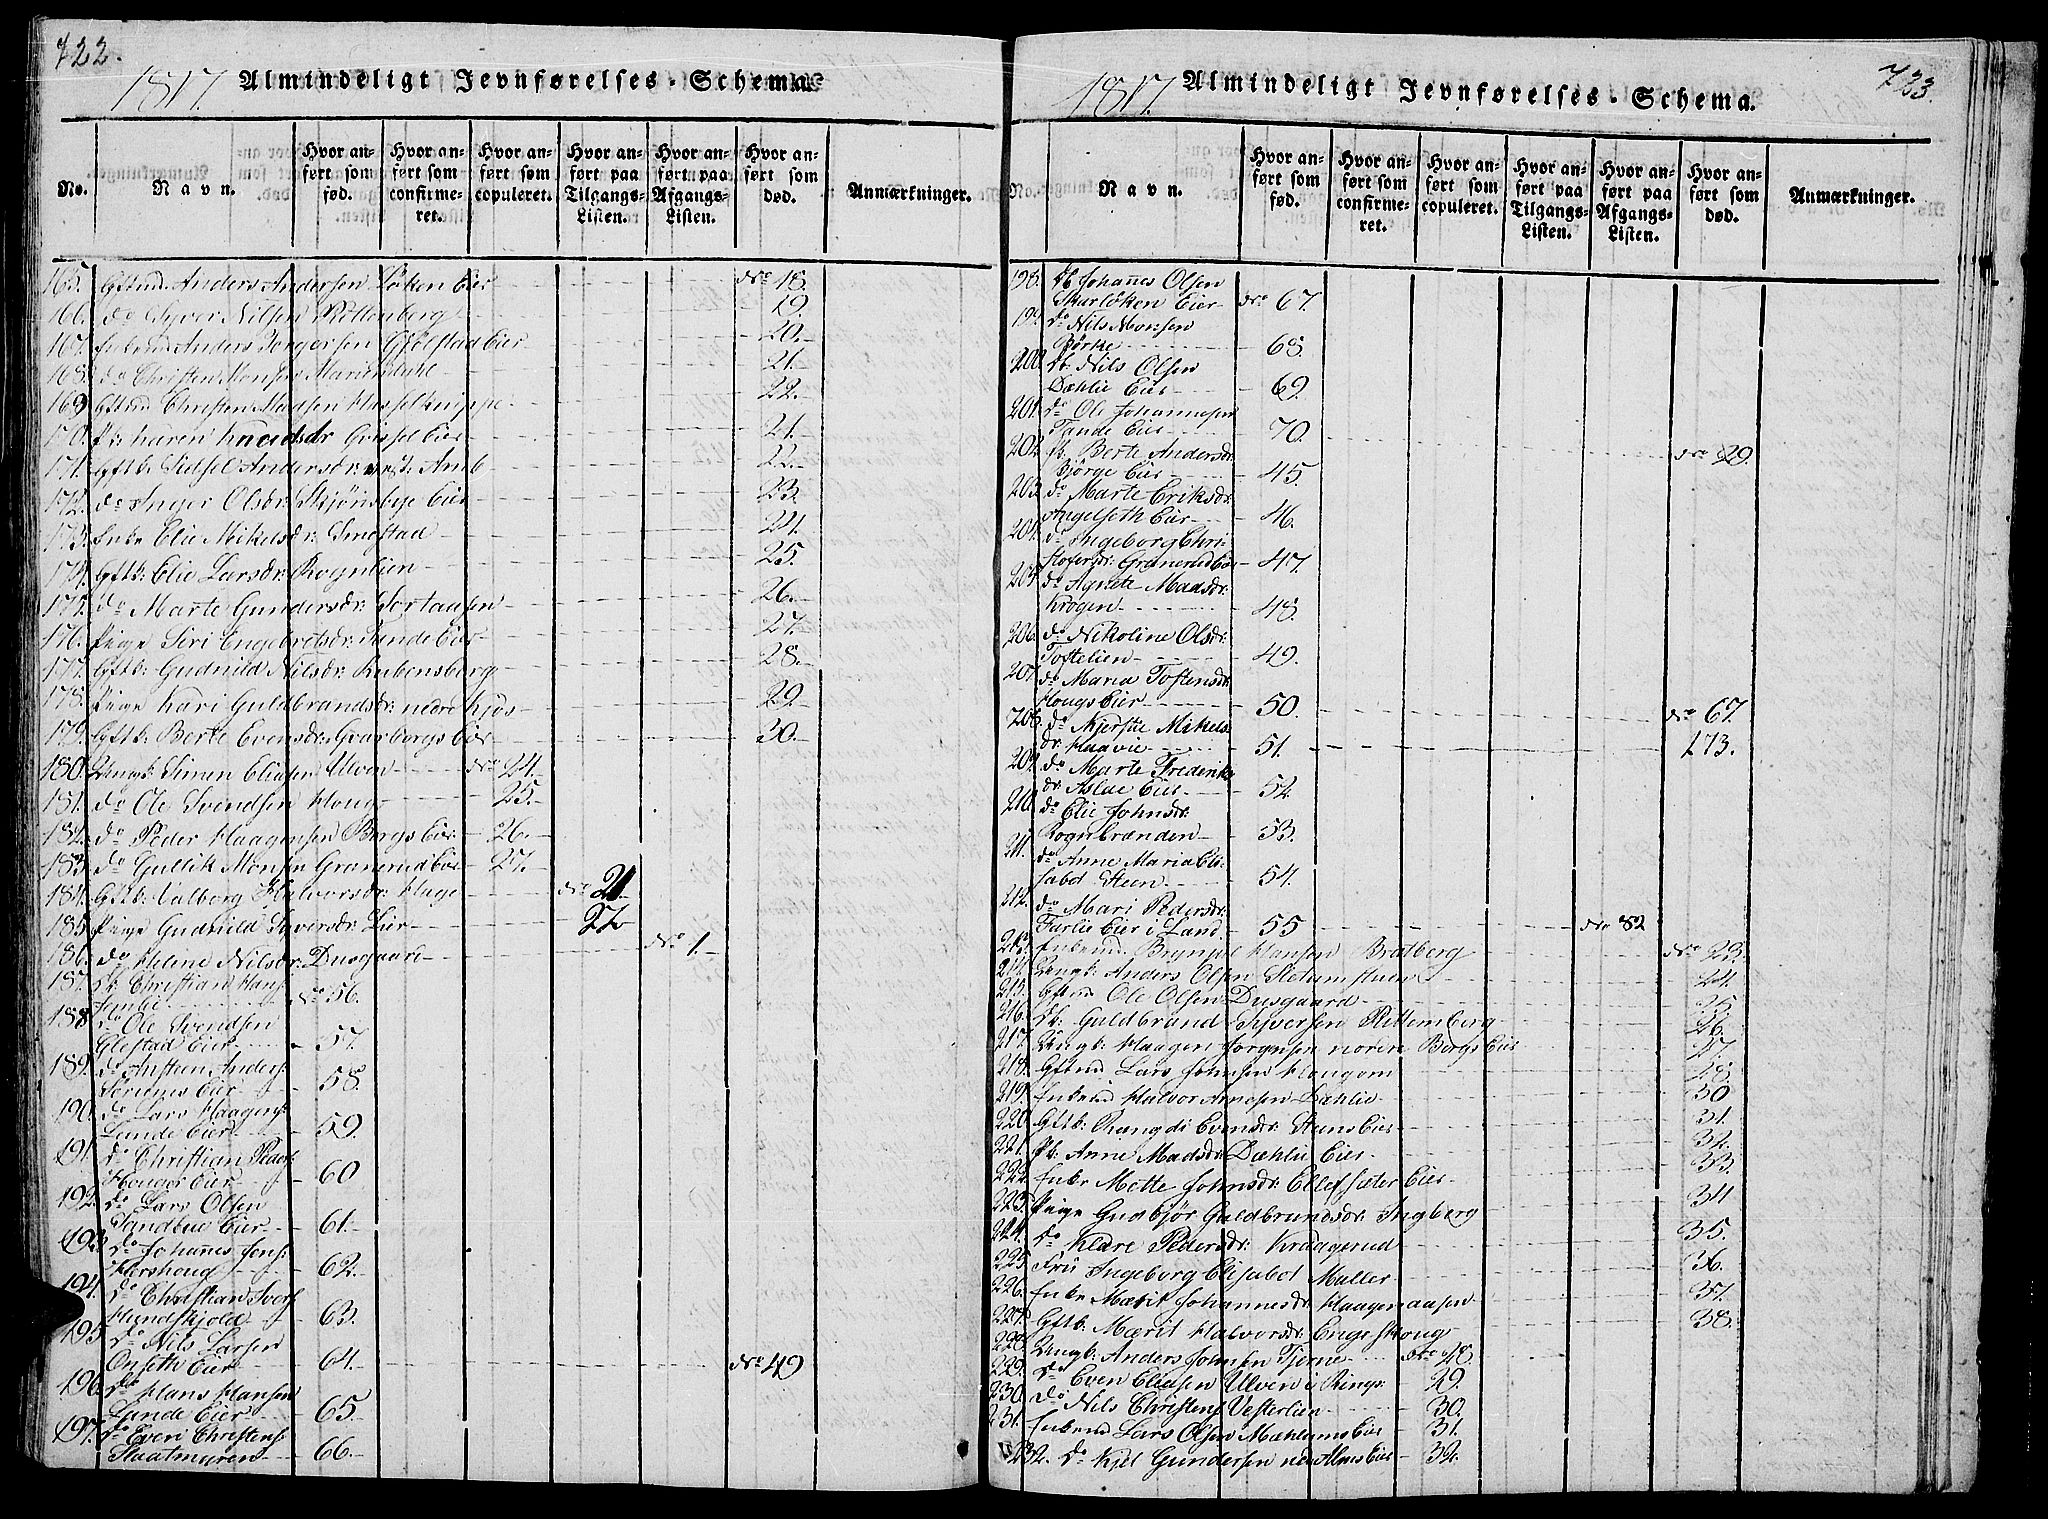 722.
1817. Almindeligt Jevnførelses-Schema.
No. Navn. Hvor anført som fød. Hvor anført som confirmeret. Hvor anført som copuleret. Hvor anført paa Tilgangs-Listen. Hvor anført paa Afgangs-Listen. Hvor anført som død. Anmærkninger.
165. Gftmd. Anders Andersen Løken Eier No 18.
166. do Syver Nilsen 19.
167. Enkemd Anders Eier 20.
168. do Christen Monsen Mariendahl 21.
169. Gftmd Christen Madsen Hasselknippe 22.
170. Pk: Karen Knudsdr: Eier 21.
171. Gftk: Sidsel Andersdr: 22.
172. do Inger Olsdr: Skjønsbye Eier 23.
173. Enke Elie Mikelsdr: Smestad 24.
174. Gftk: Elie Larsdr: Rognlien 25.
175. do Marte Gundersdr: 26.
176. Pige Siri Engebretsdr: Lande Eier 27.
177. Gftk: Gudnild Nilsdr: Rubensberg 28.
178. Pige Kari Guldbrandsdr: nedre Kjøs 29.
179. Gftk: Berte Evensdr: Eier 30.
180. Ungk: Simen Eliasen Ulven No 24.
181. do Ole Svendsen Houg 25.
182. do Peder Haagensen Bergs Eier 26.
183. do Gullik Monsen Granerud Eier 27.
184. Gftk: Valborg Halvorsdr: Hage No 21
185. Pige Gudnild Syversdr: Lier 22
186. do Helene Nilsdr: Dusgaard No 1.
187. Db: Christian Hans:
No 56.
188. do Ole Svendsen
Glestad Eier 57.
189. do Anstein Anders:
Eier 58.
190. do Lars Haagens:
Lande Eier 59.
191. do Christian Peder:
Hougs Eier 60
192. do Lars Olsen
Sandbue Eier 61.
193. do Johannes Jens:
Hershoug 62.
194. do Christian Iver:
63.
195. do Nils Larsen
Onseth Eier 64. No 49
196. do Hans Hansen
Lande Eier 65.
197. do Even Christens:
Slaatmyren 66.
723.
1817. Almindeligt Jevnførelses-Schema.
No. Navn. Hvor anført som fød. Hvor anført som confirmeret. Hvor anført som copuleret. Hvor anført paa Tilgangs-Listen. Hvor anført paa Afgangs-Listen. Hvor anført som død. Anmærkninger.
198. Db Johannes Olsen
Skarløken Eier No 67.
199. do Nils Monsen
Børke 68.
200. Db: Nils Olsen
Dæhlie Eier 69.
201. do Ole Johannesen
Tande Eier 70.
202. Pb: Berte Andersdr: No 29.
Bjørge Eier 45.
203. do Marte Eriksdr:
Angelseth Eier 46.
204. do Ingeborg Chri-
stofersdr: Granerud Eier 47.
205. do Agnete Madsdr:
Krogen 48.
206. do Nikoline Olsdr:
Toftelien 49.
207. do Maria Tostensdr:
Hougs Eier 50. No 67.
208. do Kjerstie Mikels
dr: Haavie 51. 173.
209. do Marte Frederiks
dr: Aslae Eier 52.
210. do Elie Johnsdr:
Rognbrænden 53.
211. do Anne Maria Eli-
sabet Steen 54.
212. do Mari Pedersdr:
Eier i Land 55 No 82
213. Enkemd Brynjel Hansen Bratberg No 23.
214. Ungk: Anders Olsen 24.
215. Gftmd Ole Olsen Dusgaard 25.
216. Db: Guldbrand Syversen Rettenberg 26.
217. Ungk: Haagen Jørgensen nordre Bergs Eier 27.
218. Gftmd Lars Johnsen Hougom 28.
219. Enkemd Halvor Arnesen Dæhlie 30
220. Gftk: Rangdi Evensdr: Stens Eier 31.
221. Pb: Anne Madsdr: Dæhlie Eier 32.
222. Enke Mette Johnsdr: Ellefsæter Eier 33.
223. Pige Gudbjør Guldbrandsdr: Ingberg 34
224. do Kldre Pedersdr: Kraagerud 35.
225. Frü Ingeborg Elisabet Muller 36.
226. Enke Marit Johannesdr: Haagenaasen 37.
227. Gftk: Mærit Halvorsdr: Engeshoug 38.
228. Ungk: Anders Johnsen Tjerne No 28.
229. do Even Eliasen Ulven i Rings: 29.
230. do Nils Christens: Vesterlien 30.
231. Enkemd Lars Olsen Mæhlums Eier 31.
232. do Kjel Gundersen Alms Eier 32.